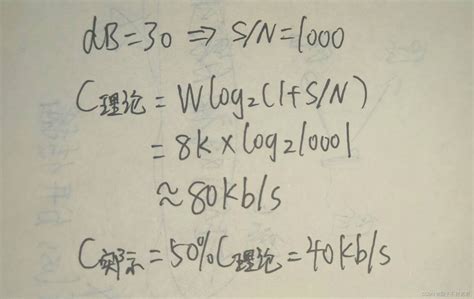 dB=30 ⇒ S/N=1000
C理论 = Wlog₂(1+S/N)
= 8k×log₂1001
≈80kb/s
C实际=50%C理论=40kb/s